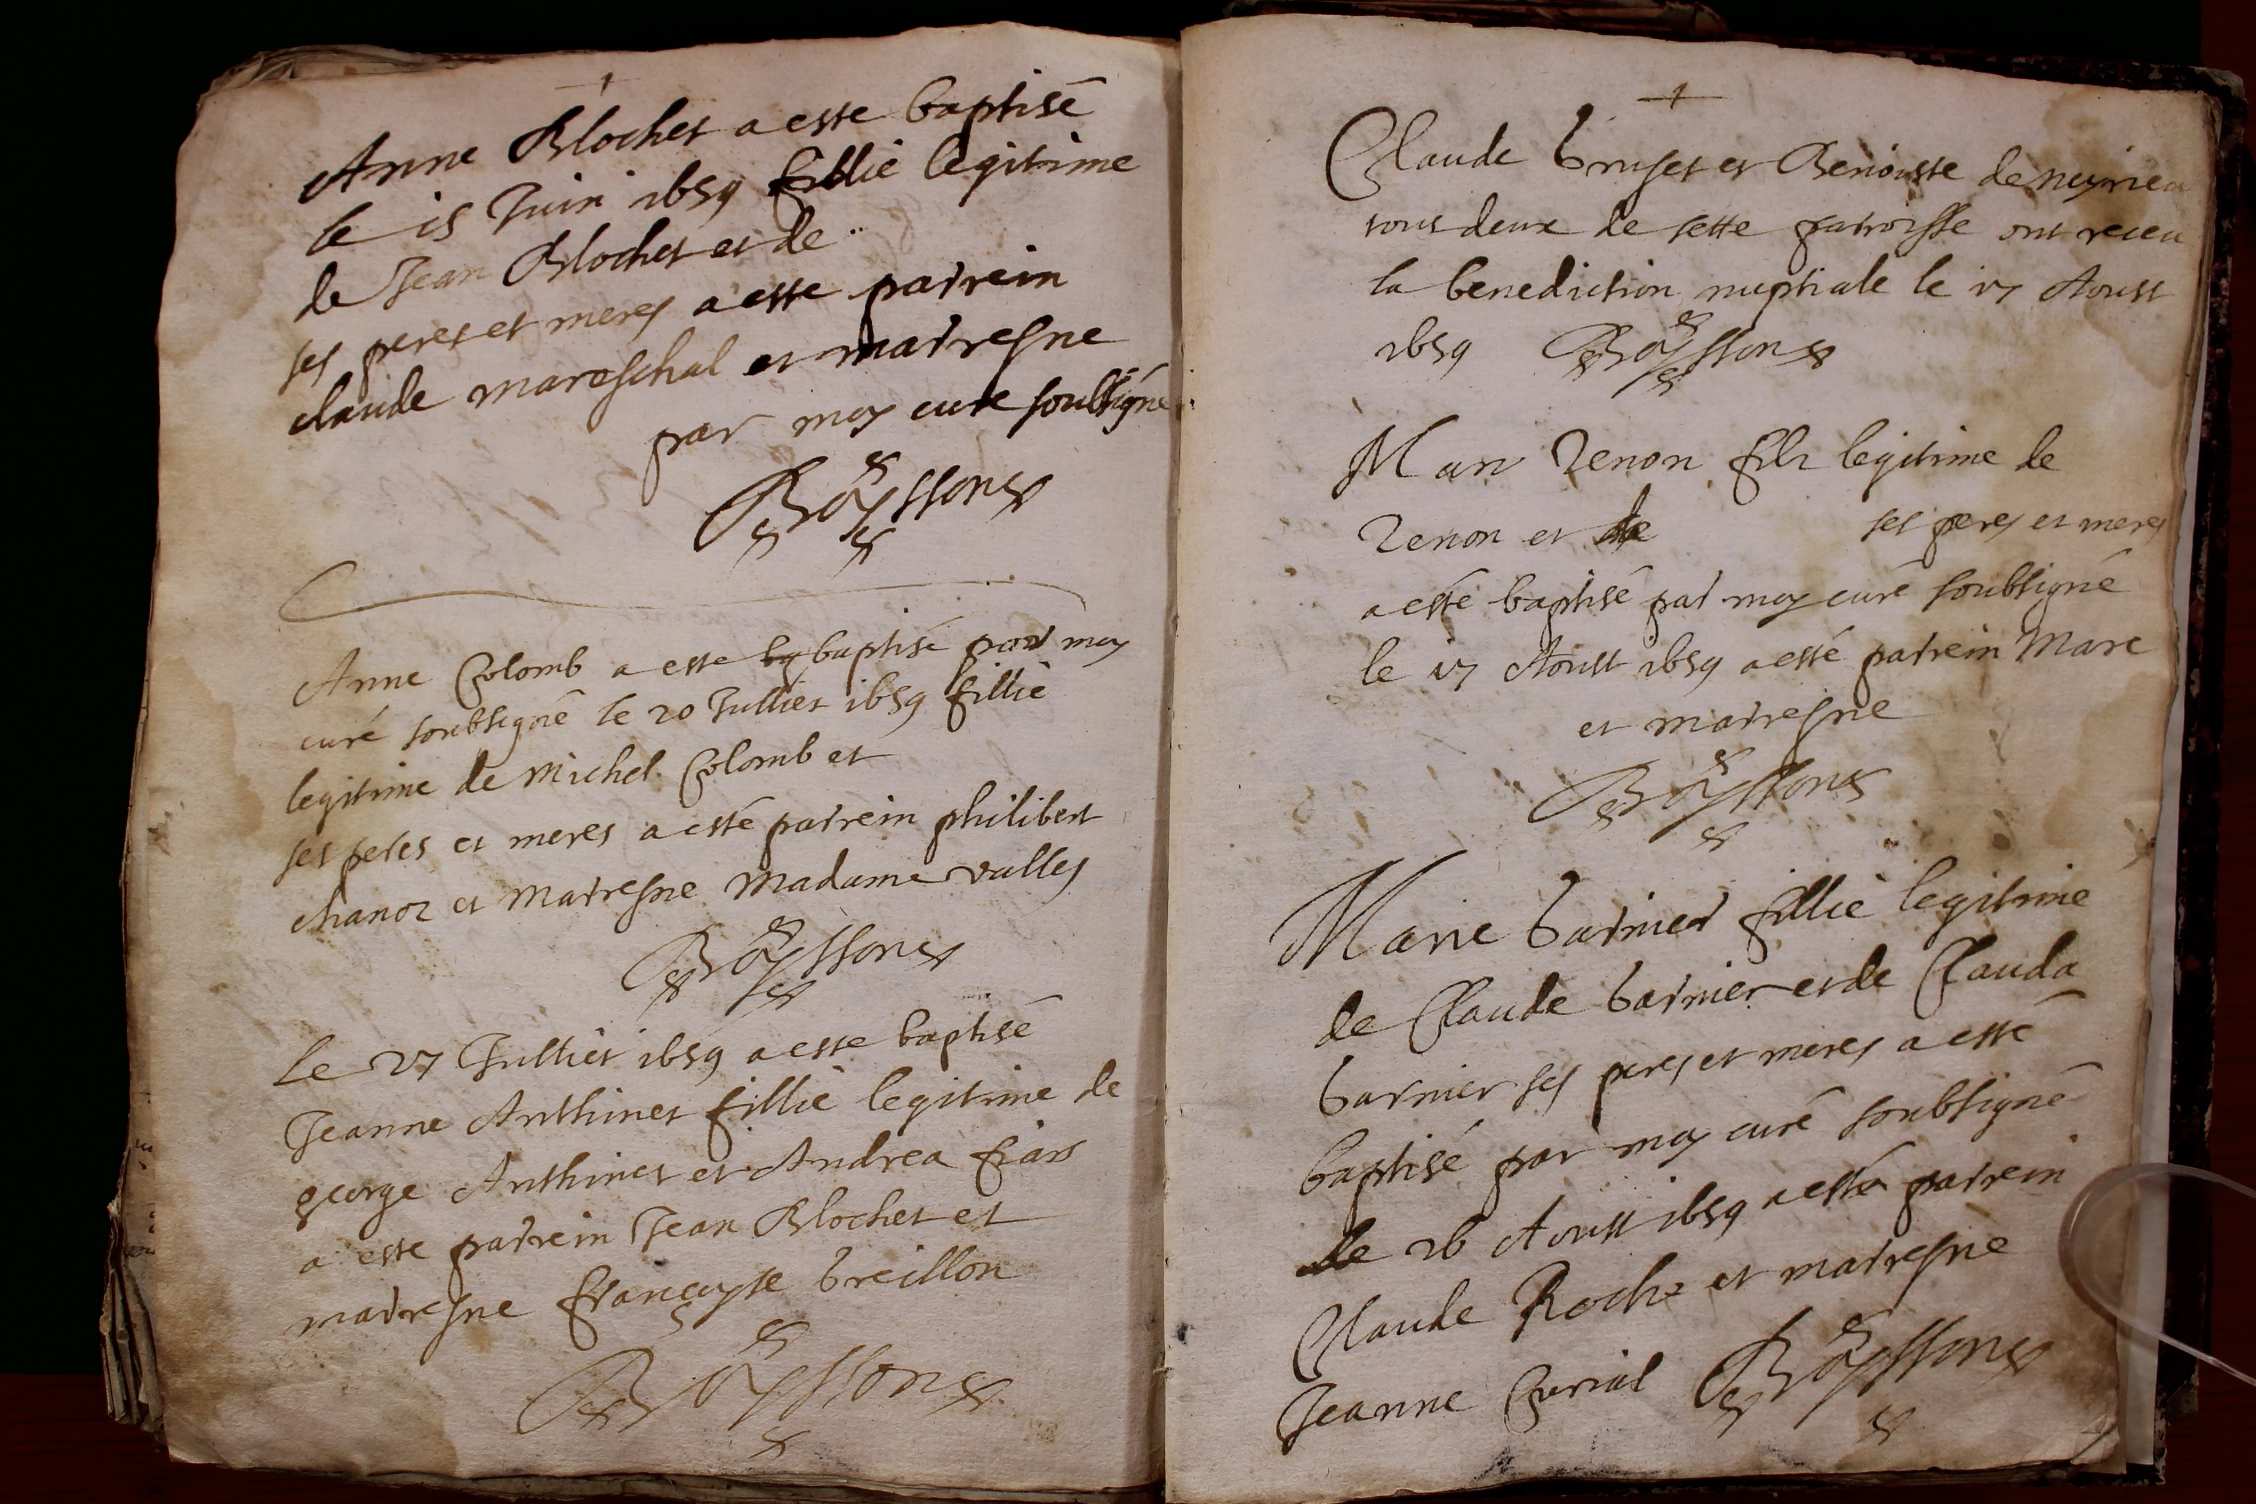 Anne Blochet a esté baptisé
le 15 Juin 1659 fillie legitime
de Jean Blochet et de
ses peres et meres a esté parrein
claude mareschal et marresne
par moy curé soubsigné
Boyssons
Anne Colomb a esté baptisé par moy
curé soubsigné le 20 Julliet 1659 fillie
legitime de Michel Colomb et
ses peres et meres a esté parrein philibert
chanoz et marresne Madame valles
Boyssons
Le 27 Jullièt 1659 a esté baptisé
Jeanne Anthinet fillie legitime de
george Anthinet et Andrea
a este parrein Jean Blochet et
marresne francoyse breillon
Boyssons
Claude bruset et Benoiste de neyrieu
tous deux de sette parroisse ont receu
la benediction nuptiale le 17 Aoust
1659 Boyssons
Marc Zenon filz legitime de
Zenon et de ses peres et meres
a esté baptisé par moy curé soubsigné
le 17 Aoust 1659 a esté parrein Marc
et marresne
Boyssons
Marie barnier fillie legitime
de Claude barnier et de Clauda
barnier ses peres et meres a esté
baptisé par moy curé soubsigné
le 26 Aoust 1659 a esté parrein
Claude Roche et marresne
Jeanne Curial Boyssons